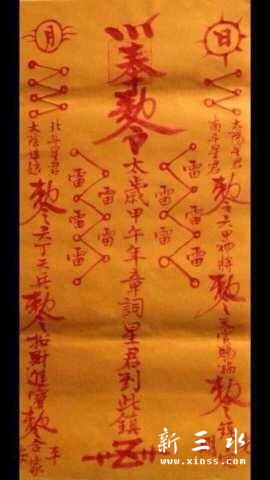 日
太陽星君
南斗星君
勅令六甲神將
勅令天官賜福
勅令
雷雷雷雷
奉
勅令
太歲甲午年章詞星君到此鎮
雷雷雷雷
月
北斗星君
太陰
勅令六丁天兵
勅令招財進寶
勅令合家平安
新三水
www.xinss.com